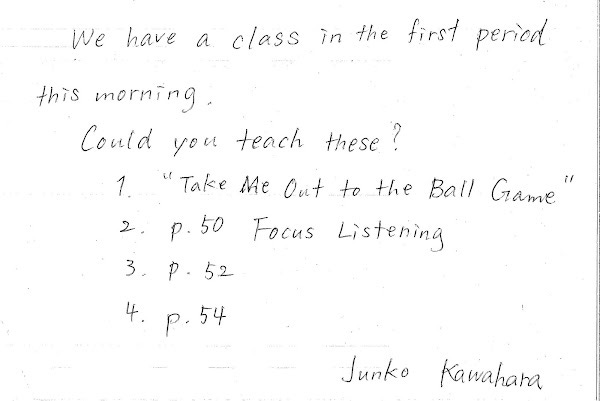 We have a class in the first period
this morning.
Could you teach these?
1. "Take Me Out to the Ball Game"
2. p.50 Focus Listening
3. p.52
4. p.54
Junko Kawahara